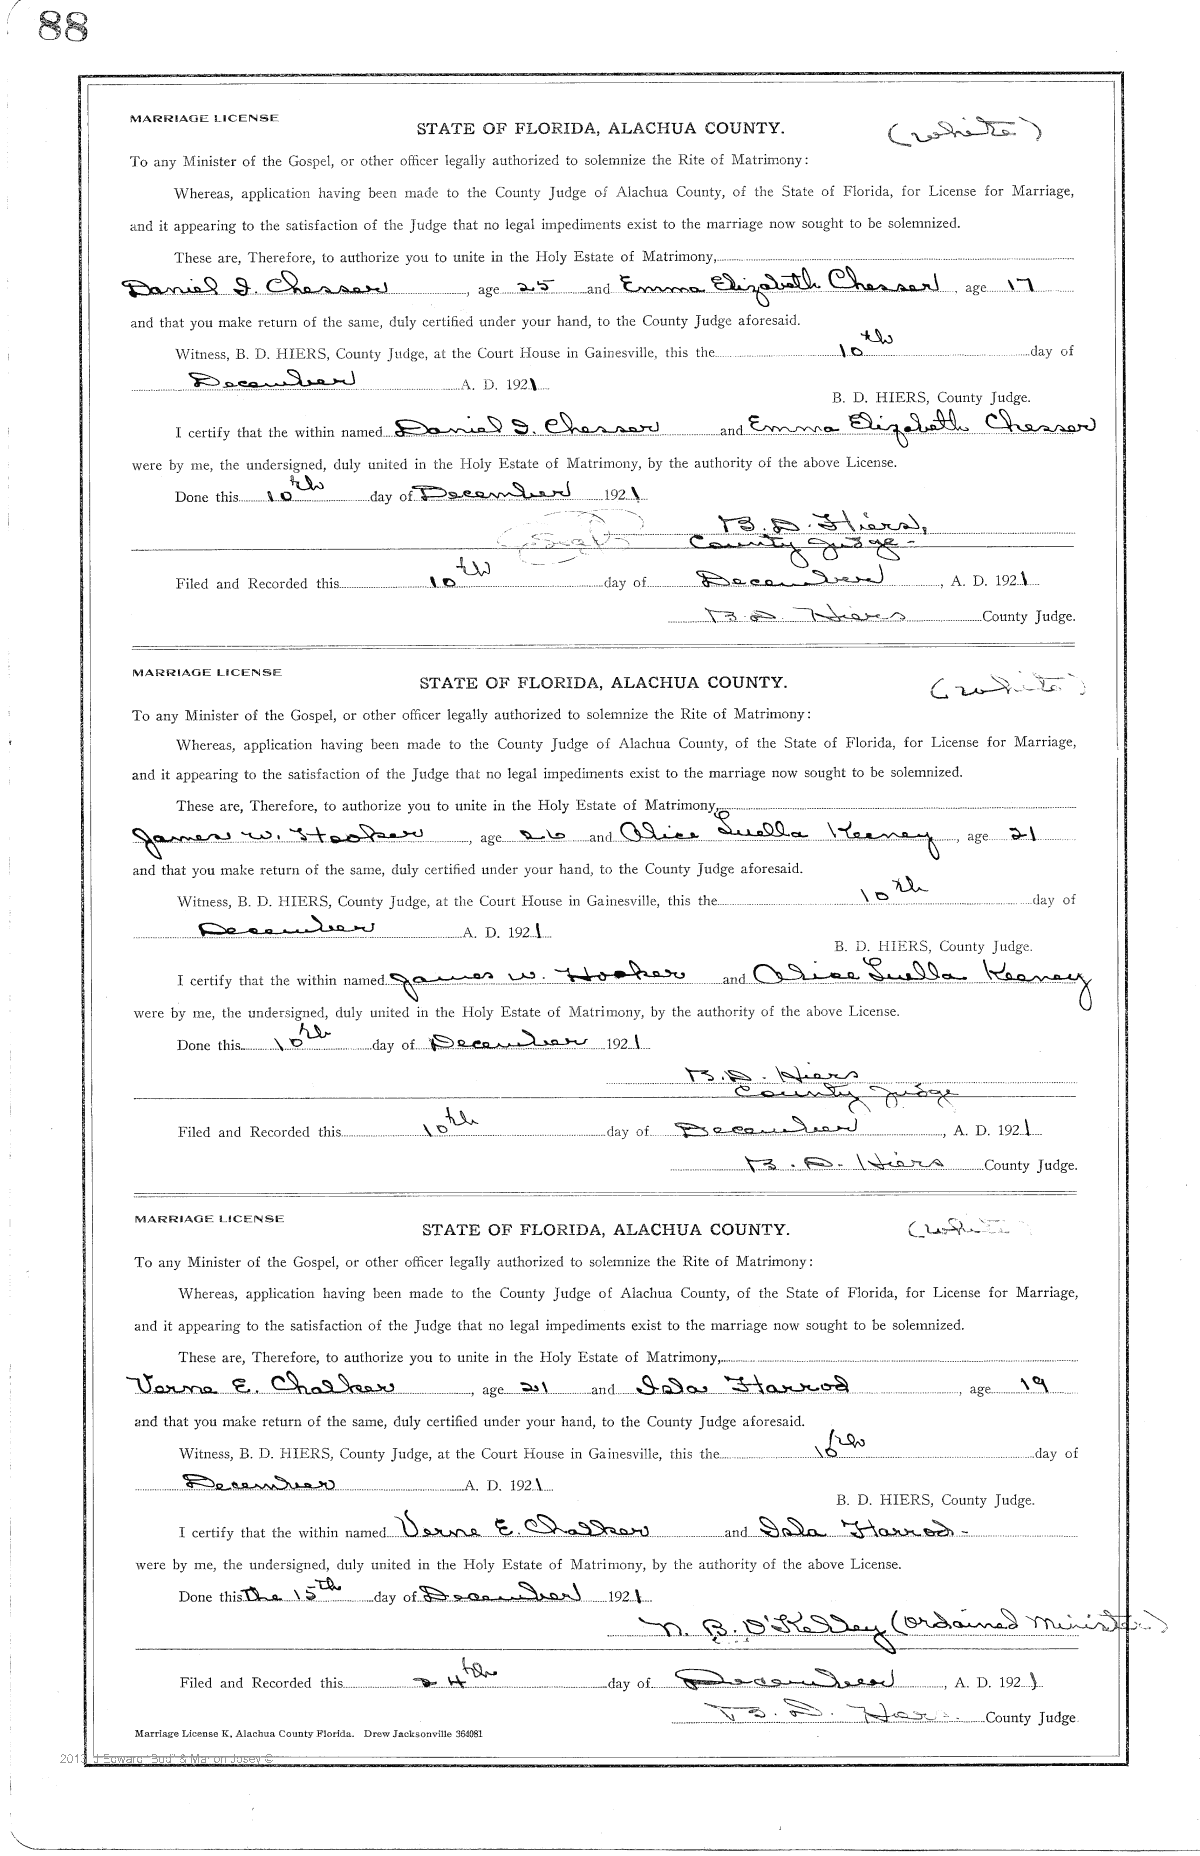 88
MARRIAGE LICENSE
STATE OF FLORIDA, ALACHUA COUNTY. (white)
To any Minister of the Gospel, or other officer legally authorized to solemnize the Rite of Matrimony:
Whereas, application having been made to the County Judge of Alachua County, of the State of Florida, for License for Marriage,
and it appearing to the satisfaction of the Judge that no legal impediments exist to the marriage now sought to be solemnized.
These are, Therefore, to authorize you to unite in the Holy Estate of Matrimony,
Daniel I. Chesser, age 25 and Emma Elizabeth Chesser, age 17
and that you make return of the same, duly certified under your hand, to the County Judge aforesaid.
Witness, B. D. HIERS, County Judge, at the Court House in Gainesville, this the 10th day of
December A. D. 1921
B. D. HIERS, County Judge.
I certify that the within named Daniel I. Chesser and Emma Elizabeth Chesser
were by me, the undersigned, duly united in the Holy Estate of Matrimony, by the authority of the above License.
Done this 10th day of December 1921
B. D. Hiers,
(Seal) County Judge-
Filed and Recorded this 10th day of December, A. D. 1921
B D Hiers County Judge.
MARRIAGE LICENSE
STATE OF FLORIDA, ALACHUA COUNTY. (white)
To any Minister of the Gospel, or other officer legally authorized to solemnize the Rite of Matrimony:
Whereas, application having been made to the County Judge of Alachua County, of the State of Florida, for License for Marriage,
and it appearing to the satisfaction of the Judge that no legal impediments exist to the marriage now sought to be solemnized.
These are, Therefore, to authorize you to unite in the Holy Estate of Matrimony,
James W. Hooker, age 26 and Alice Luella Keeney, age 21
and that you make return of the same, duly certified under your hand, to the County Judge aforesaid.
Witness, B. D. HIERS, County Judge, at the Court House in Gainesville, this the 10th day of
December A. D. 1921
B. D. HIERS, County Judge.
I certify that the within named James W. Hooker and Alice Luella Keeney
were by me, the undersigned, duly united in the Holy Estate of Matrimony, by the authority of the above License.
Done this 10th day of December 1921
B. D. Hiers
County Judge
Filed and Recorded this 10th day of December, A. D. 1921
B. D. Hiers County Judge.
MARRIAGE LICENSE
STATE OF FLORIDA, ALACHUA COUNTY. (white
To any Minister of the Gospel, or other officer legally authorized to solemnize the Rite of Matrimony:
Whereas, application having been made to the County Judge of Alachua County, of the State of Florida, for License for Marriage,
and it appearing to the satisfaction of the Judge that no legal impediments exist to the marriage now sought to be solemnized.
These are, Therefore, to authorize you to unite in the Holy Estate of Matrimony,
Verne E. Chalker, age 21 and Isla Harrod, age 19
and that you make return of the same, duly certified under your hand, to the County Judge aforesaid.
Witness, B. D. HIERS, County Judge, at the Court House in Gainesville, this the 10th day of
December A. D. 1921
B. D. HIERS, County Judge.
I certify that the within named Verne E. Chalker and Isla Harrod-
were by me, the undersigned, duly united in the Holy Estate of Matrimony, by the authority of the above License.
Done this the 15th day of December 1921
N. B. O'Kelley (Ordained Minister)
Filed and Recorded this 24th day of December, A. D. 1921
B. D. Hiers County Judge
Marriage License K, Alachua County Florida. Drew Jacksonville 364081
2013 J Edward "Bud" & Marion Josey ©